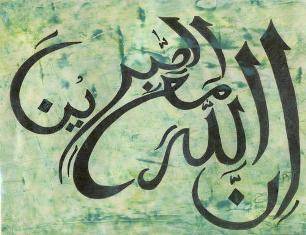 إنّ اللّه مع الصّبرين